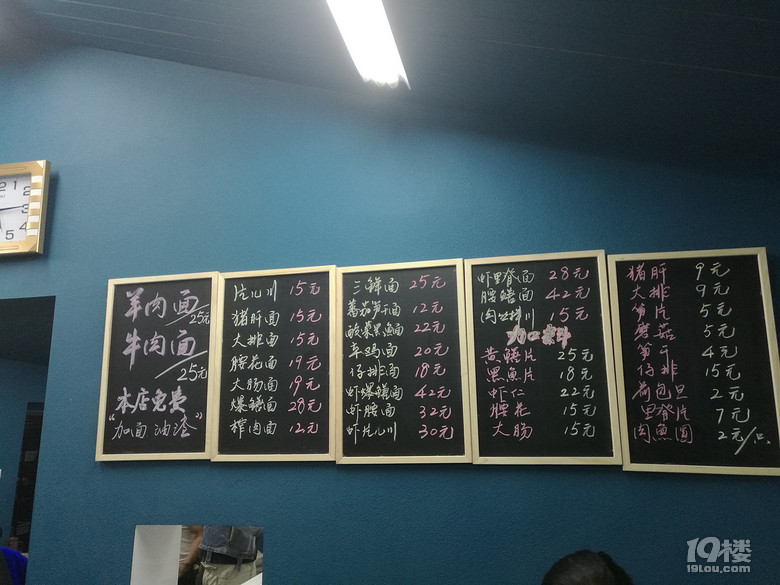 羊肉面
25元
牛肉面
25元
本店免费
“加面 油渣”
片儿川 15元
猪肝面 15元
大排面 15元
腰花面 19元
大肠面 19元
爆鳝面 28元
榨肉面 12元
三鲜面 25元
蕃茄笋干面 12元
酸菜黑魚面 22元
本鸡面 20元
仔排面 18元
虾爆鳝面 42元
虾腰面 32元
虾片儿川 30元
虾里脊面 28元
腰鳝面 42元
15元
加口菜料
黄鳝片 25元
黑魚片 18元
虾仁 22元
腰花 15元
大肠 15元
猪肝 9元
大排 9元
笋片 5元
蘑菇 5元
笋干 4元
仔排 15元
荷包旦 2元
里脊片 7元
肉魚圆 2元/只
1
2
3
4
5
19楼
19lou.com